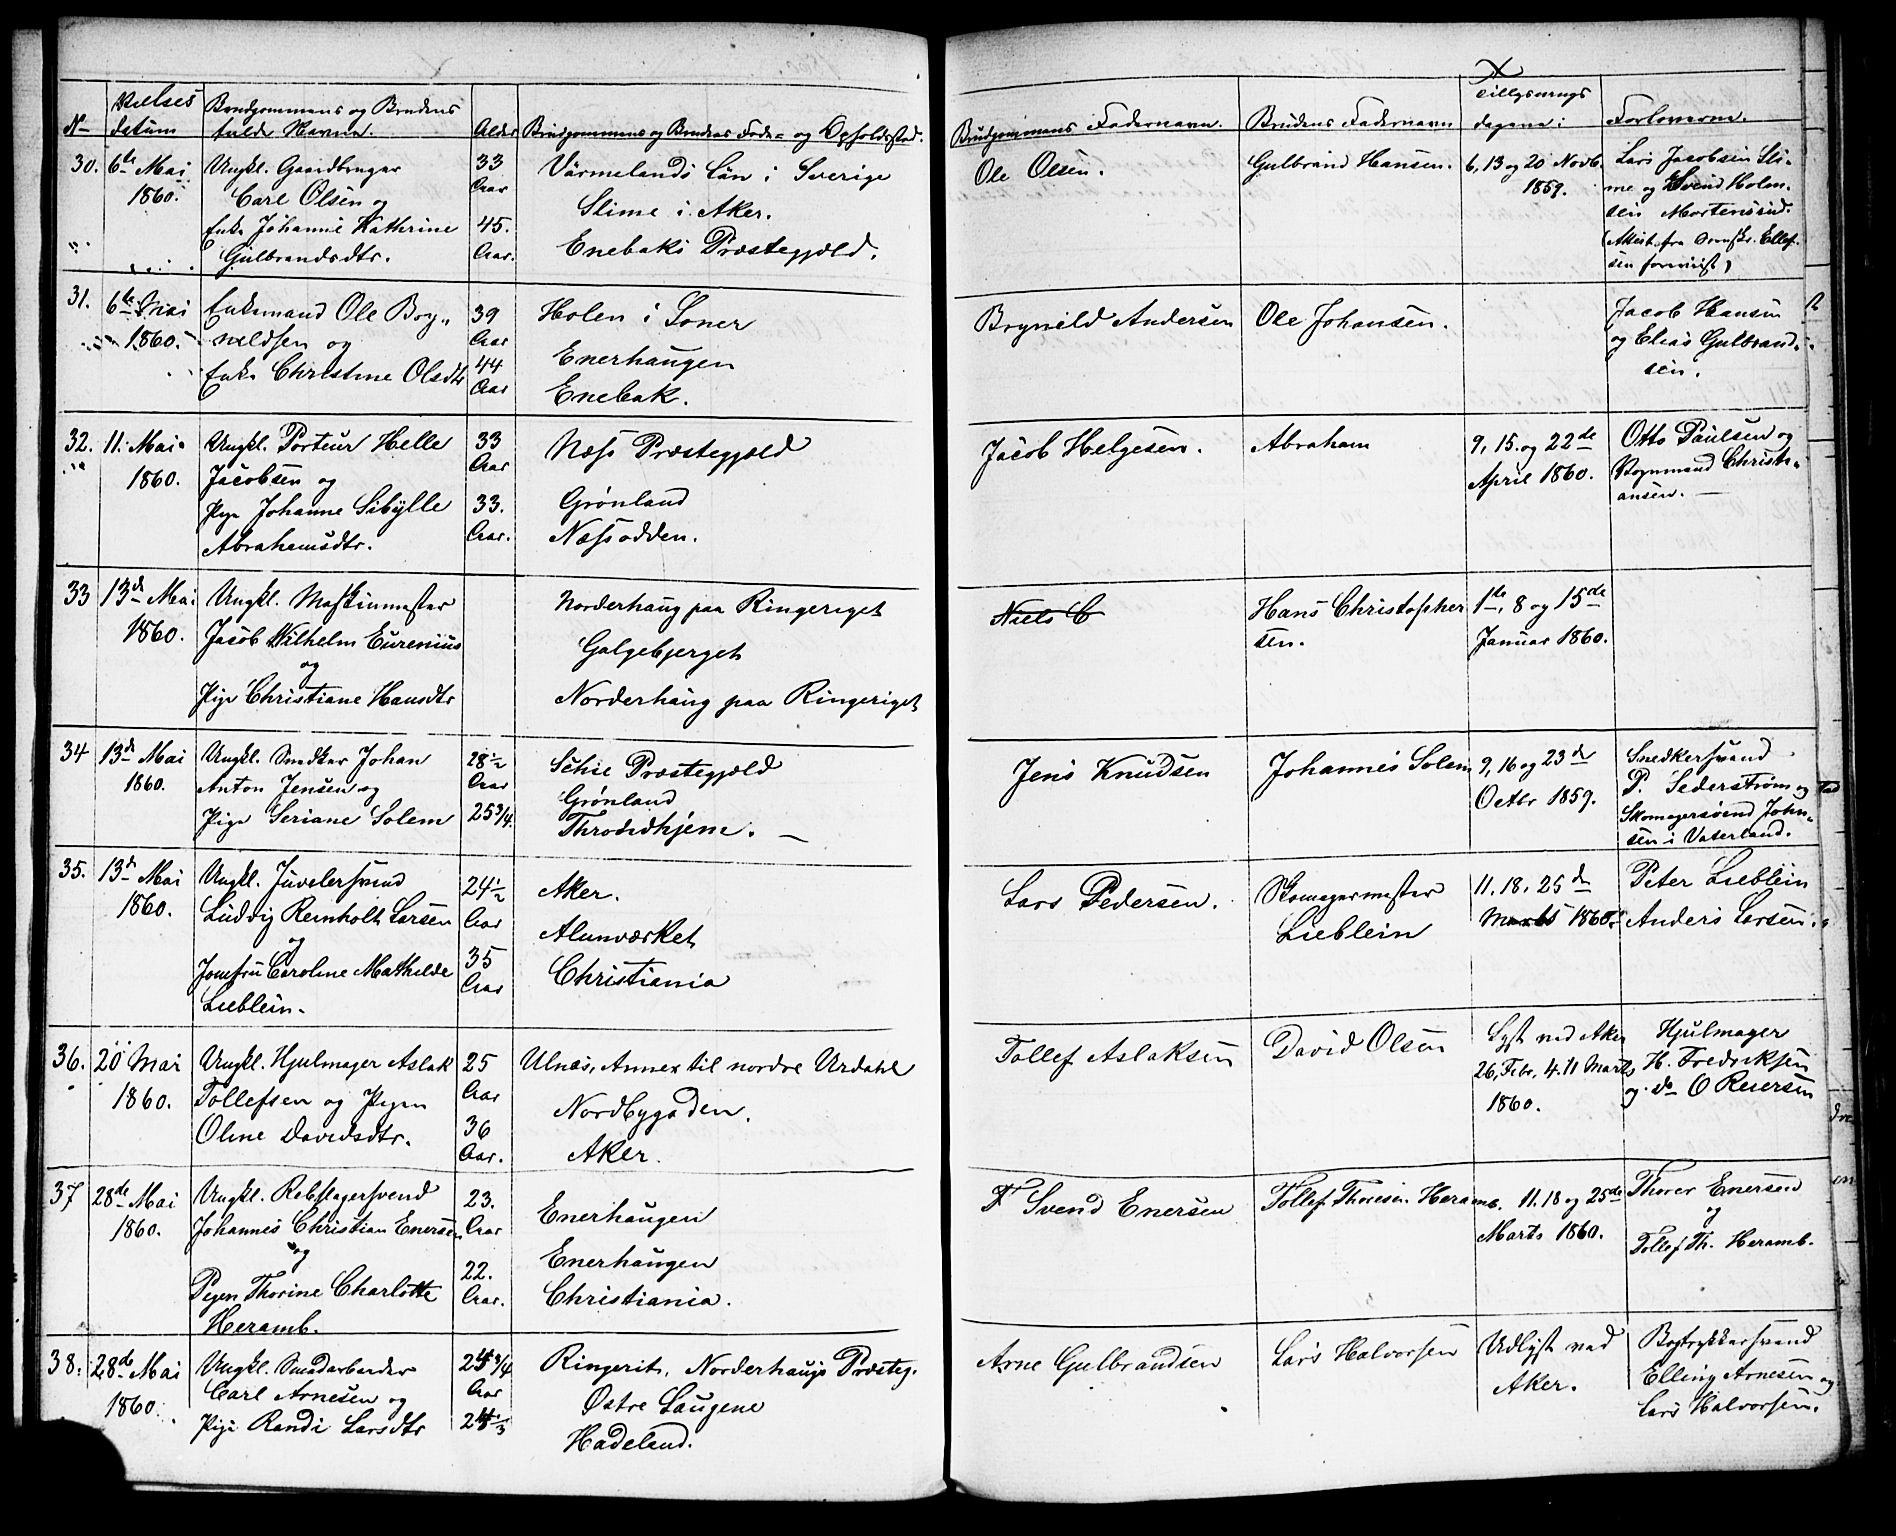 No Vielses datum | Brudgommens og Brudens fulde Navne. | Alder | Brudgommens og Brudens Føde- og Opholdssted. | Brudgommens Fadernavn. | Brudens Fadernavn | Tillysnings dagene: | Forloverne.
30. 6te Mai 1860.
Ungkl. Gaardbruger
Carl Olsen og
Enke Johanne Kathrine
Gulbrandsdtr.
33 Aar
45. Aar.
Värmelands Län i Sverige
Slime i Aker.
Enebaks Præstegjæld.
Ole Olsen.
Gulbrand Hansen.
6, 13 og 20 Novb.
1859.
Lars Jacobsen Sli-
me og Svend Holm-
sen Mortensrud.
(Attest fra Ellef-
sen foreviist)
31. 6te Mai 1860.
Enkemand Ole Bry-
nildsen og
Enke Christine Olsdtr
39 Aar
44 Aar
Holen i Soner
Enerhaugen
Enebak.
Brynild Andersen
Ole Johansen.
Jacob Hansen
og Elias Gulbrand-
sen.
32. 11. Mai 1860.
Ungkl. Porteur Helle
Jacobsen og
Pige Johanne Sibylle
Abrahamsdtr.
33 Aar
33. Aar.
Næss Præstegjæld
Grønland
Næssodden.
Jacob Helgesen.
Abraham
9, 15. og 22de
April 1860.
Otto Paulsen og
Vognmand Christi-
ansen.
33 13de Mai 1860.
Ungkl. Maskinmester
Jacob Wilhelm Eurenius
og
Pige Christiane Hansdtr
Norderhaug paa Ringeriget
Galgebjerget
Norderhaug paa Ringeriget
Niels C
Hans Christopher
sen.
1te, 8 og 15de
Januar 1860.
34 13de Mai 1860.
Ungkl. Snedker Johan
Anton Jensen og
Pige Seriane Solem
28½ Aar
25¾.
Schie Præstegjæld
Grønland
Throndhjem.
Jens Knudsen
Johannes Solem
9, 16 og 23de
Octbr 1859.
Snedkersvend
P. Sederstrøm og
Skomagersvend John-
sen i Vaterland.
35. 13de Mai 1860.
Ungkl. Juvelersvend
Ludvig Reinholt Larsen
og
Jomfru Caroline Mathilde
Lieblein.
24½ Aar
35 Aar
Aker.
Alunværket
Christiania
Lars Pedersen.
Skomagermester
Lieblein
11. 18. 25de
Marts 1860.
Peter Lieblein
Anders Larsen.
36. 20 Mai 1860.
Ungkl. Hjulmager Aslak
Tollefsen og Pigen
Oline Davidsdtr.
25 Aar
36 Aar.
Ulnæs, Annex til nordre Urdahl
Nordbygaden.
Aker.
Tollef Aslaksen
David Olsen
Lyst ved Aker
26, Febr, 4. 11 Marts
1860.
Hjulmager
H. Fredriksen
og do O Reiersen
37 28de Mai 1860.
Ungkl. Rebslagersvend
Johannes Christian Enersen
og
Pigen Thorine Charlotte
Heramb.
23. Aar
22. Aar.
Enerhaugen
Enerhaugen
Christiania.
Svend Enersen
Tollef Thoresen Heramb.
11. 18 og 25de
Marts 1860.
Thorer Enersen
og
Tollef Th. Heramb.
38. 28de Mai 1860.
Ungkl. Smedarbeider
Carl Arnesen og
Pige Randi Larsdtr
Aar
Ringerik, Norderhaugs Præsteg.
Østre Laugene
Hadeland.
Arne Gulbrandsen
Lars Halvorsen
Udlyst ved
Aker.
Bogtrykkersvend
Elling Arnesen og
Lars Halvorsen.